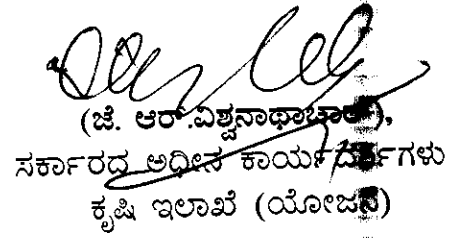 (ಜೆ. ಆರ್.ವಿಶ್ವನಾಥಾಚಾರ್),
ಸರ್ಕಾರದ ಅಧೀನ ಕಾರ್ಯದರ್ಶಿಗಳು
ಕೃಷಿ ಇಲಾಖೆ (ಯೋಜನೆ)